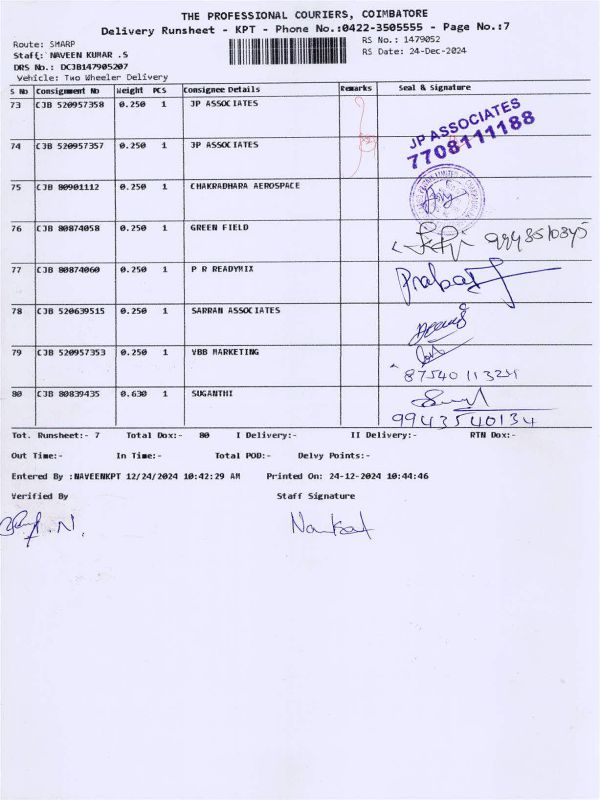 THE PROFESSIONAL COURIERS, COIMBATORE
Delivery Runsheet - KPT - Phone No.:0422-3505555 - Page No.:7
Route: SHARP RS No.: 1479052
Staff: NAVEEN KUMAR .S RS Date: 24-Dec-2024
DRS No.: DCJB147905207
Vehicle: Two Wheeler Delivery
S No Consignment No Weight PCS Consignee Details Remarks Seal & Signature
73 CJB 520957358 0.250 1 JP ASSOCIATES
JP ASSOCIATES
7708111188
74 CJB 520957357 0.250 1 JP ASSOCIATES
75 CJB 80901112 0.250 1 CHAKRADHARA AEROSPACE
76 CJB 80874058 0.250 1 GREEN FIELD
77 CJB 80874060 0.250 1 P R READYMIX
78 CJB 520639515 0.250 1 SARRAN ASSOCIATES
79 CJB 520957353 0.250 1 VBB MARKETING
80 CJB 80839435 0.630 1 SUGANTHI
9943540134
Tot. Runsheet:- 7 Total Dox:- 80 I Delivery:- II Delivery:- RTN Dox:-
Out Time:- In Time:- Total POD:- Delvy Points:-
Entered By :NAVEENKPT 12/24/2024 10:42:29 AM Printed On: 24-12-2024 10:44:46
Verified By Staff Signature